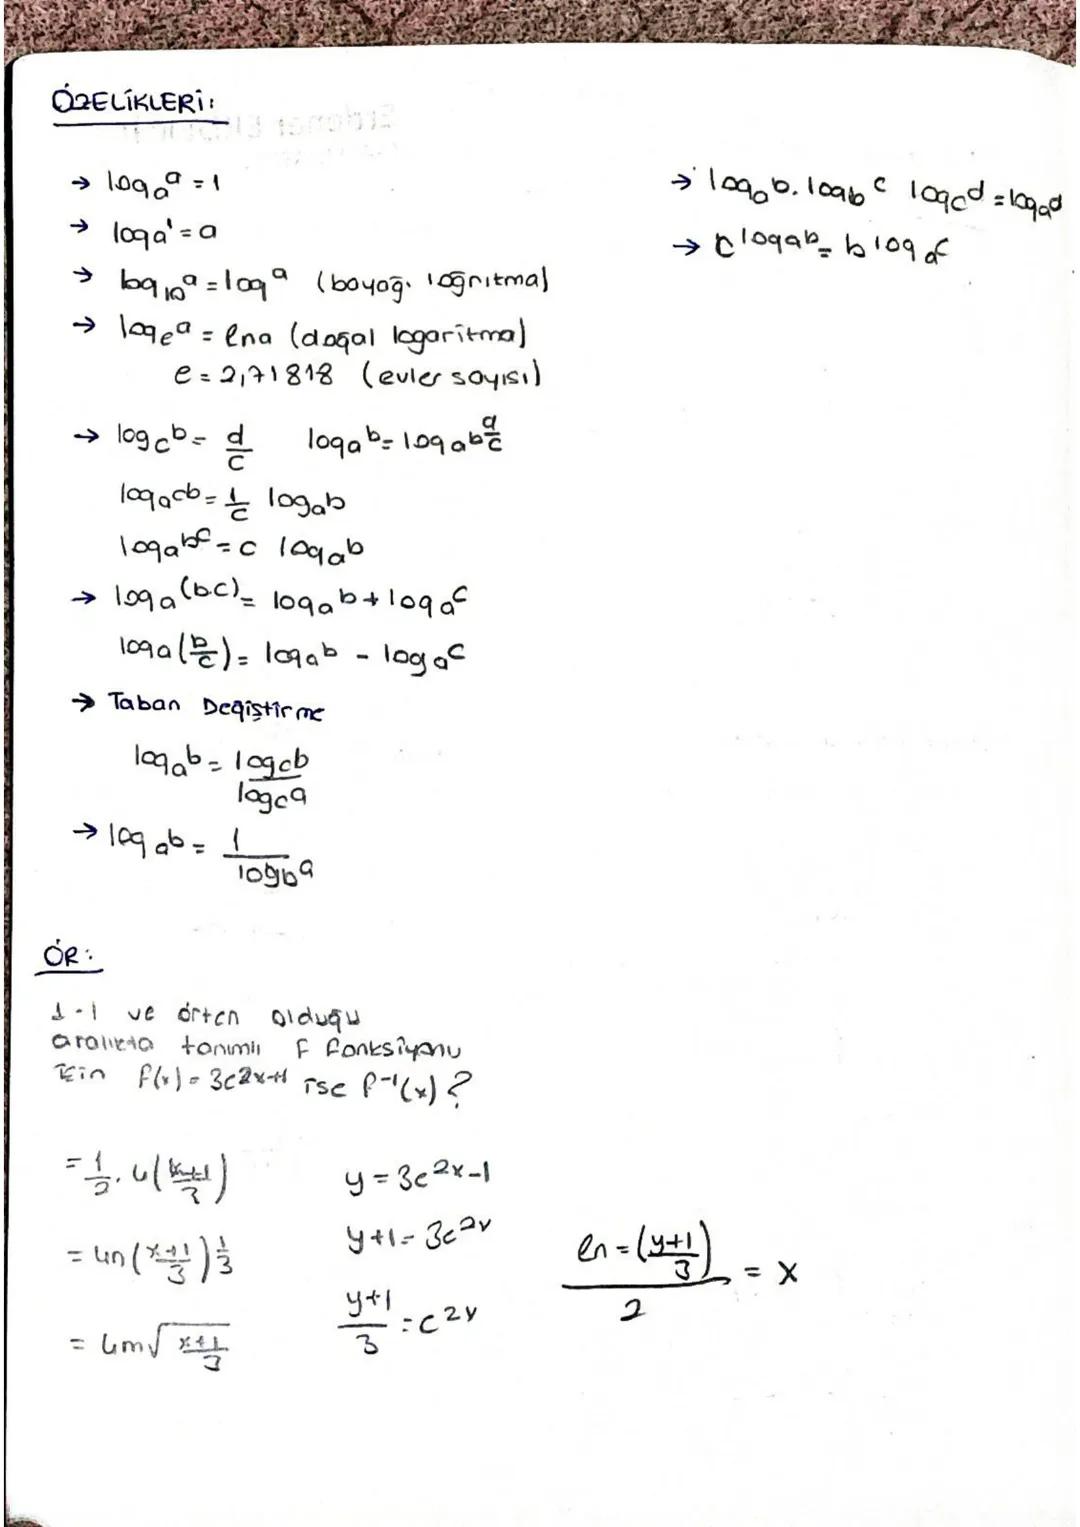 ÖZELİKLERİ:
→ logₐa = 1
→ loga¹ = a
→ log₁₀a = log a (bayağ. loğrıtma)
→ logₑa = lna (doğal logaritma)
e = 2,71818 (euler sayısı)
→ log_c b = d/c logₐb = logₐb^(d/c)
logₐcb = 1/c logₐb
logₐb^c = c logₐb
→ logₐ(b.c) = logₐb + logₐc
logₐ(b/c) = logₐb - logₐc
→ Taban Değiştirme
logₐb = log_c b / log_c a
→ logₐb = 1 / log_b a
→ logₐb. log_b c log_c d = logₐd
→ c^logₐb = b^logₐc
ÖR:
1-1 ve örten olduğu
aralıkta tanımlı F fonksiyonu
için f(x) = 3e^2x+1 ise f⁻¹(x) ?
= 1/2 . (x+1/3)
= (x+1/3)^1/3
= √x+1/3
y = 3e^2x-1
y+1 = 3e^2x
y+1/3 = e^2x
ln = (y+1/3) / 2 = x